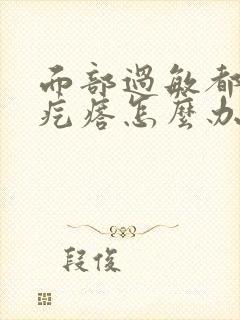 而部過敏都
疙瘩怎麼办
段俊